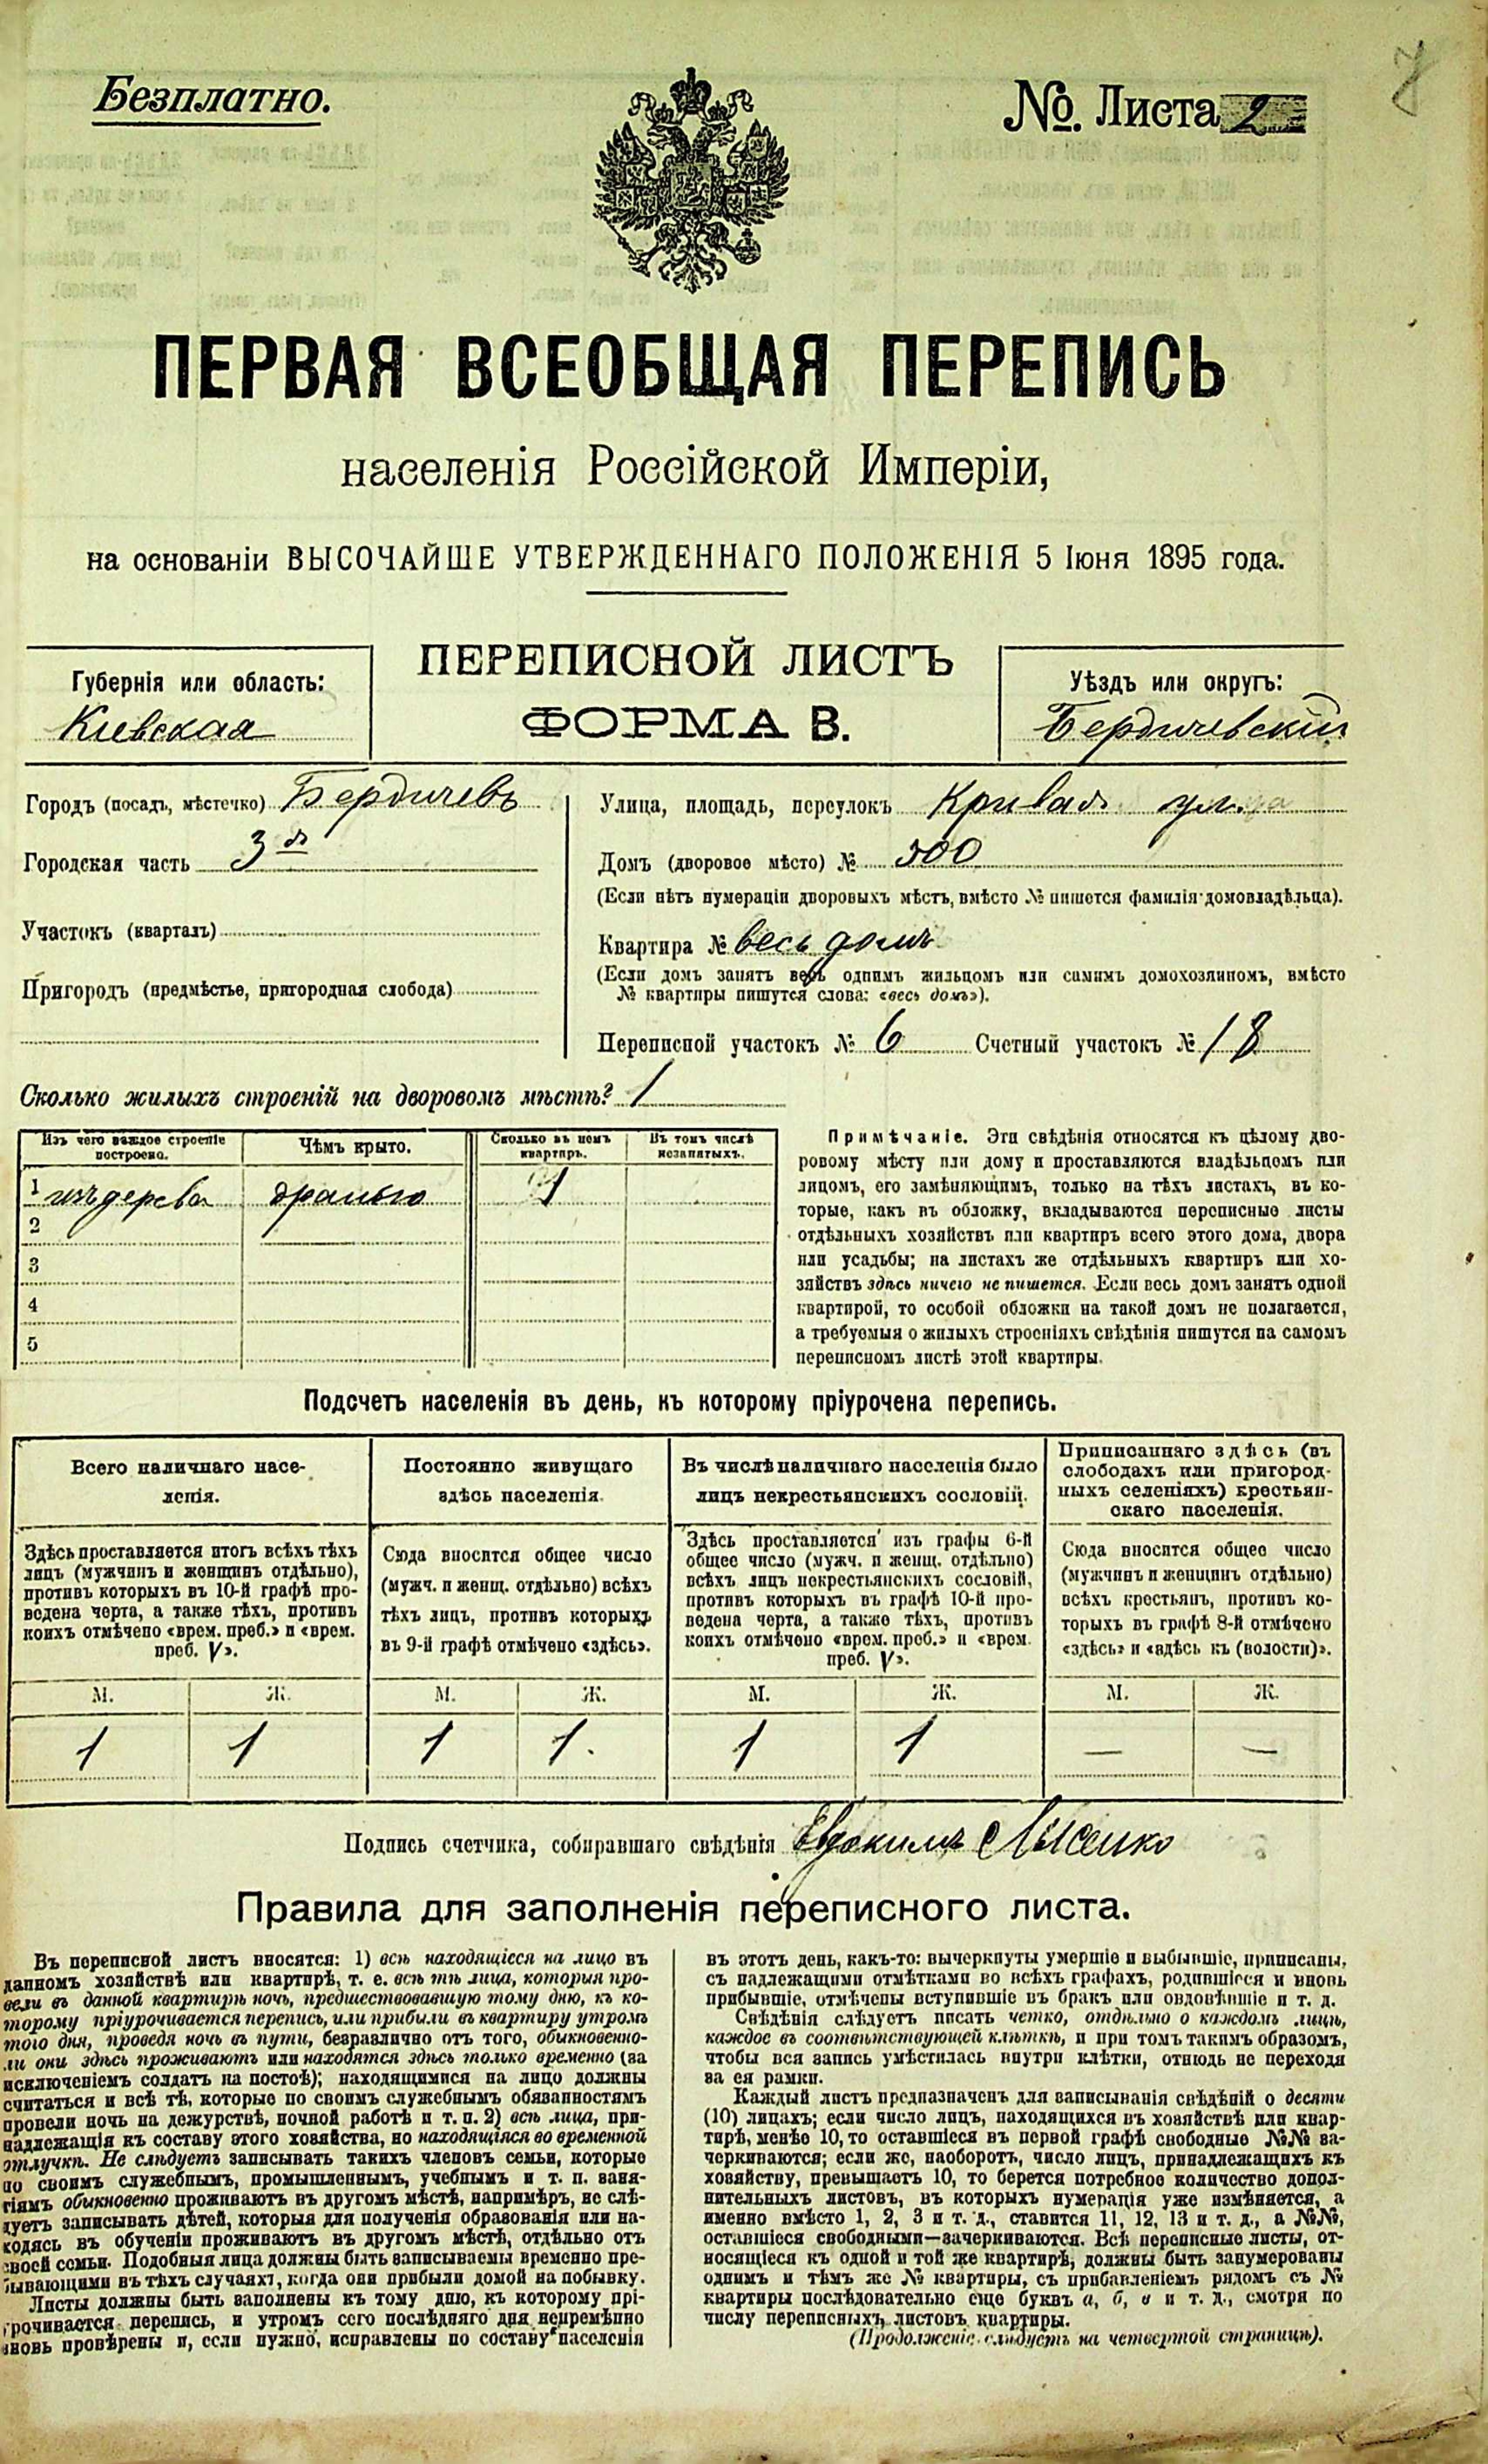 Безплатно.
№. Листа 2
7
ПЕРВАЯ ВСЕОБЩАЯ ПЕРЕПИСЬ
населенія Россійской Имперіи,
на основаніи ВЫСОЧАЙШЕ УТВЕРЖДЕННАГО ПОЛОЖЕНІЯ 5 Іюня 1895 года.
ПЕРЕПИСНОЙ ЛИСТЪ
ФОРМА В.
Губернія или область:
Кіевская
Уѣздъ или округъ:
Бердичевскій
Городъ (посадъ, мѣстечко) Бердичевъ
Городская часть 3я
Участокъ (кварталъ)
Пригородъ (предмѣстье, пригородная слобода)
Улица, площадь, переулокъ Кривая ул.
Домъ (дворовое мѣсто) № 500
(Если нѣтъ нумераціи дворовыхъ мѣстъ, вмѣсто № пишется фамилія домовладѣльца).
Квартира № весь домъ
(Если домъ занятъ весь однимъ жильцомъ или самимъ домохозяиномъ, вмѣсто
№ квартиры пишутся слова: «весь домъ»).
Переписной участокъ № 6 Счетный участокъ № 18
Сколько жилыхъ строеній на дворовомъ мѣстѣ? 1
Изъ чего каждое строеніе
построено.
Чѣмъ крыто.
Сколько въ немъ
квартиръ.
Въ томъ числѣ
незанятыхъ.
1 изъ дерева дранью 1
2
3
4
5
Примѣчаніе. Эти свѣдѣнія относятся къ цѣлому дво-
ровому мѣсту или дому и проставляются владѣльцомъ или
лицомъ, его замѣняющимъ, только на тѣхъ листахъ, въ ко-
торые, какъ въ обложку, вкладываются переписные листы
отдѣльныхъ хозяйствъ или квартиръ всего этого дома, двора
или усадьбы; на листахъ же отдѣльныхъ квартиръ или хо-
зяйствъ здѣсь ничего не пишется. Если весь домъ занятъ одной
квартирой, то особой обложки на такой домъ не полагается,
а требуемыя о жилыхъ строеніяхъ свѣдѣнія пишутся на самомъ
переписномъ листѣ этой квартиры.
Подсчетъ населенія въ день, къ которому пріурочена перепись.
Всего наличнаго насе-
ленія.
Постоянно живущаго
здѣсь населенія.
Въ числѣ наличнаго населенія было
лицъ некрестьянскихъ сословій.
Приписаннаго здѣсь (въ
слободахъ или пригород-
ныхъ селеніяхъ) крестьян-
скаго населенія.
Здѣсь проставляется итогъ всѣхъ тѣхъ
лицъ (мужчинъ и женщинъ отдѣльно),
противъ которыхъ въ 10-й графѣ про-
ведена черта, а также тѣхъ, противъ
коихъ отмѣчено «врем. преб.» и «врем.
преб. V».
Сюда вносится общее число
(мужч. и женщ. отдѣльно) всѣхъ
тѣхъ лицъ, противъ которыхъ
въ 9-й графѣ отмѣчено «здѣсь».
Здѣсь проставляется изъ графы 6-й
общее число (мужч. и женщ. отдѣльно)
всѣхъ лицъ некрестьянскихъ сословій,
противъ которыхъ въ графѣ 10-й про-
ведена черта, а также тѣхъ, противъ
коихъ отмѣчено «врем. преб.» и «врем.
преб. V».
Сюда вносится общее число
(мужчинъ и женщинъ отдѣльно)
всѣхъ крестьянъ, противъ ко-
торыхъ въ графѣ 8-й отмѣчено
«здѣсь» и «здѣсь къ (волости)».
М. Ж. М. Ж. М. Ж. М. Ж.
1 1 1 1. 1 1 — —
Подпись счетчика, собиравшаго свѣдѣнія Евдокимъ Лысенко
Правила для заполненія переписного листа.
Въ переписной листъ вносятся: 1) всѣ находящіеся на лицо въ
данномъ хозяйствѣ или квартирѣ, т. е. всѣ тѣ лица, которыя про-
вели въ данной квартирѣ ночь, предшествовавшую тому дню, къ ко-
торому пріурочивается перепись, или прибыли въ квартиру утромъ
того дня, проведя ночь въ пути, безразлично отъ того, обыкновенно-
ли они здѣсь проживаютъ или находятся здѣсь только временно (за
исключеніемъ солдатъ на постоѣ); находящимися на лицо должны
считаться и всѣ тѣ, которые по своимъ служебнымъ обязанностямъ
провели ночь на дежурствѣ, ночной работѣ и т. п. 2) всѣ лица, при-
надлежащія къ составу этого хозяйства, но находящіяся во временной
отлучкѣ. Не слѣдуетъ записывать такихъ членовъ семьи, которые
по своимъ служебнымъ, промышленнымъ, учебнымъ и т. п. заня-
тіямъ обыкновенно проживаютъ въ другомъ мѣстѣ, напримѣръ, не слѣ-
дуетъ записывать дѣтей, которыя для полученія образованія или на-
ходясь въ обученіи проживаютъ въ другомъ мѣстѣ, отдѣльно отъ
своей семьи. Подобныя лица должны быть записываемы временно пре-
бывающими въ тѣхъ случаяхъ, когда они прибыли домой на побывку.
Листы должны быть заполнены къ тому дню, къ которому прі-
урочивается перепись, и утромъ сего послѣдняго дня непремѣнно
вновь провѣрены и, если нужно, исправлены по составу населенія
въ этотъ день, какъ-то: вычеркнуты умершіе и выбывшіе, приписаны,
съ надлежащими отмѣтками во всѣхъ графахъ, родившіеся и вновь
прибывшіе, отмѣчены вступившіе въ бракъ или овдовѣвшіе и т. д.
Свѣдѣнія слѣдуетъ писать четко, отдѣльно о каждомъ лицѣ,
каждое въ соотвѣтствующей клѣткѣ, и при томъ такимъ образомъ,
чтобы вся запись умѣстилась внутри клѣтки, отнюдь не переходя
за ея рамки.
Каждый листъ предназначенъ для записыванія свѣдѣній о десяти
(10) лицахъ; если число лицъ, находящихся въ хозяйствѣ или квар-
тирѣ, менѣе 10, то оставшіеся въ первой графѣ свободные №№ за-
черкиваются; если же, наоборотъ, число лицъ, принадлежащихъ къ
хозяйству, превышаетъ 10, то берется потребное количество допол-
нительныхъ листовъ, въ которыхъ нумерація уже измѣняется, а
именно вмѣсто 1, 2, 3 и т. д., ставится 11, 12, 13 и т. д., а №№,
оставшіеся свободными—зачеркиваются. Всѣ переписные листы, от-
носящіеся къ одной и той же квартирѣ, должны быть занумерованы
однимъ и тѣмъ же № квартиры, съ прибавленіемъ рядомъ съ №
квартиры послѣдовательно еще буквъ а, б, в и т. д., смотря по
числу переписныхъ листовъ квартиры.
(Продолженіе слѣдуетъ на четвертой страницѣ).